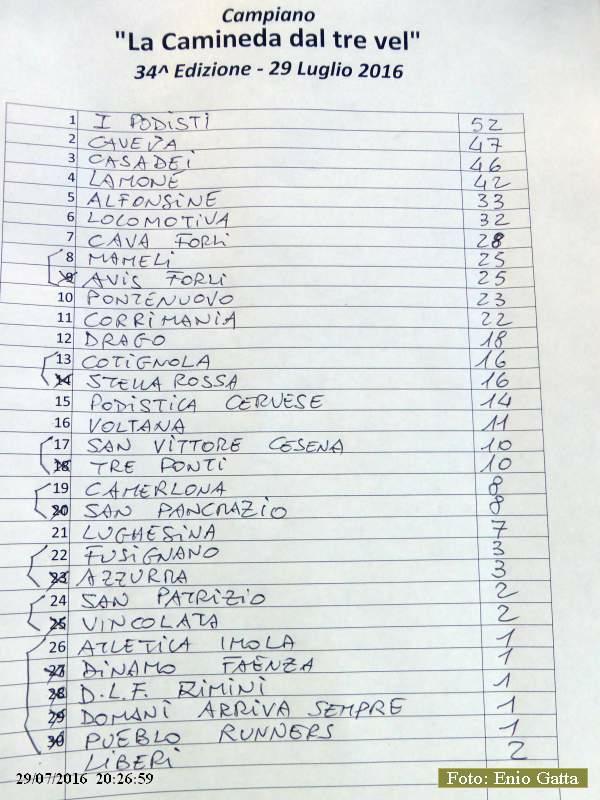 Campiano
"La Camineda dal tre vel"
34^ Edizione - 29 Luglio 2016
1 I PODISTI 52
2 CAVEJA 47
3 CASADEI 46
4 LAMONE 42
5 ALFONSINE 33
6 LOCOMOTIVA 32
7 CAVA FORLI 28
8 MAMELI 25
9 AVIS FORLI 25
10 PONTENUOVO 23
11 CORRIMANIA 22
12 DRAGO 18
13 COTIGNOLA 16
14 STELLA ROSSA 16
15 PODISTICA CERVESE 14
16 VOLTANA 11
17 SAN VITTORE CESENA 10
18 TRE PONTI 10
19 CAMERLONA 8
20 SAN PANCRAZIO 8
21 LUGHESINA 7
22 FUSIGNANO 3
23 AZZURRA 3
24 SAN PATRIZIO 2
25 VINCOLATA 2
26 ATLETICA IMOLA 1
27 DINAMO FAENZA 1
28 D.L.F. RIMINI 1
29 DOMANI ARRIVA SEMPRE 1
30 PUEBLO RUNNERS 1
LIBERI 2
29/07/2016 20:26:59
Foto: Enio Gatta